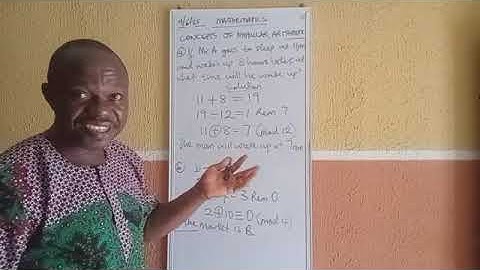 MATHEMATICS
CONCEPTS OF MODULAR ARITHMETIC
If Mr A goes to sleep at 11pm
and wakes up 8 hours later, at
what time will he wake up?
Solution
11 + 8 = 19
19 ÷ 12 = 1 Rem 7
11 ⊕ 8 = 7 (mod 12)
The man will wake up at 7am
= 3 Rem 0
2 ⊕ 10 = 0 (mod 4)
The market is B